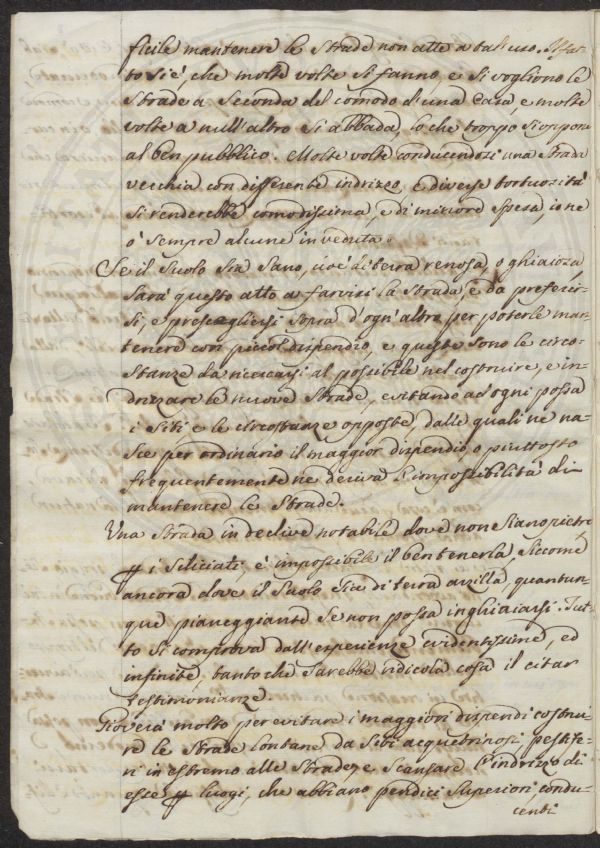 ficile mantenere le Strade non atte a tall'uso. Il fat-
to si è, che molte volte si fanno, e si vogliono le
Strade a seconda del comodo d'una Casa, e molte
volte a null'altro si abbada, lo che troppo si oppone
al ben pubblico. Molte volte conducendosi una Strada
vecchia con differente indrizzo, e diverse tortuosità
si renderebbe comodissima, e di minore spesa, io ne
ò sempre alcune in veduta.
Se il Suolo sia sano, cioè di terra renosa, o ghiaiosa,
sarà questo atto a farvisi la Strada, e da preferir-
si, e prescegliersi sopra d'ogn'altro per poterle man-
tenere con piccol dispendio, e queste sono le circo-
stanze da ricercarsi al possibile nel costruire, e in-
drizzare le nuove Strade, evitando ad ogni possa
i siti e le circostanze opposte, dalle quali ne na-
sce per ordinario il maggior dispendio, o piuttosto
frequentemente ne deriva l'impossibilità di
mantenere le Strade.
Una Strada in declive notabile dove non siano pietre
i Seliciati, è impossibile il ben tenerla, siccome
ancora dove il Suolo sia di terra arzilla, quantun-
que pianeggiante se non possa inghiaiarsi. Tut-
to si comprova dall'esperienze evidentissime, ed
infinite, tanto che sarebbe ridicola cosa il citar
testimonianze.
Gioverà molto per evitare i maggiori dispendi costrui-
re le Strade lontane da siti acquetrinosi pestife-
ri in estremo alle Strade, e scansare l'indrizzo di
esse luogi, che abbiano pendici superiori, condu-
centi